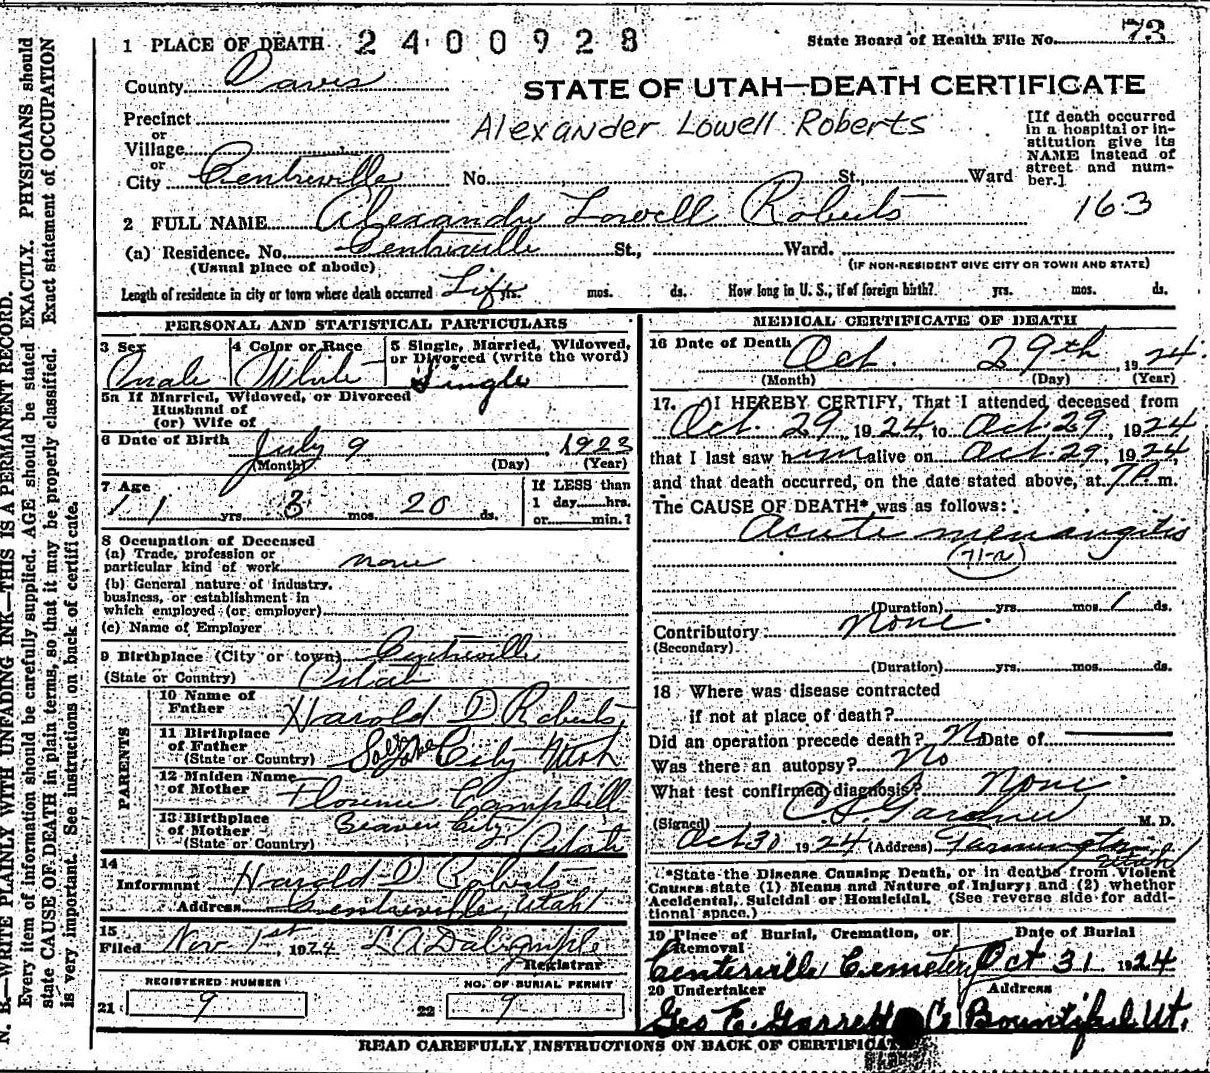 1 PLACE OF DEATH 2400928 State Board of Health File No. 73
County Davis
STATE OF UTAH—DEATH CERTIFICATE
Precinct
or
Village
or
City Centreville
Alexander Lowell Roberts
No. St., Ward
[If death occurred
in a hospital or in-
stitution give its
NAME instead of
street and num-
ber.]
2 FULL NAME Alexander Lowell Roberts 163
(a) Residence. No. Centreville St., Ward.
(Usual place of abode) (IF NON-RESIDENT GIVE CITY OR TOWN AND STATE)
Length of residence in city or town where death occurred Life yrs. mos. ds. How long in U. S., if of foreign birth? yrs. mos. ds.
PERSONAL AND STATISTICAL PARTICULARS
3 Sex Male
4 Color or Race White
5 Single, Married, Widowed,
or Divorced (write the word)
Single
5a If Married, Widowed, or Divorced
Husband of
(or) Wife of
6 Date of Birth July 9, 1923
(Month) (Day) (Year)
7 Age
1 yrs 3 mos. 20 ds.
If LESS than
1 day hrs.
or min.?
8 Occupation of Deceased
(a) Trade, profession or
particular kind of work none
(b) General nature of industry,
business, or establishment in
which employed (or employer)
(c) Name of Employer
9 Birthplace (City or town) Centreville
(State or Country) Utah
PARENTS
10 Name of
Father Harold D Roberts
11 Birthplace
of Father
(State or Country) City Utah
12 Maiden Name
of Mother Florence Campbell
13 Birthplace
of Mother Beaver City,
(State or Country) Utah
14
Informant Harold D Roberts
Address Centreville, Utah
15
Filed Nov 1st, 1924 L A Dalrymple
Registrar
REGISTERED NUMBER
21 9
NO. OF BURIAL PERMIT
22 9
MEDICAL CERTIFICATE OF DEATH
16 Date of Death Oct. 29th, 1924
(Month) (Day) (Year)
17. I HEREBY CERTIFY, That I attended deceased from
Oct. 29, 1924, to Oct. 29, 1924
that I last saw him alive on Oct. 29, 1924,
and that death occurred, on the date stated above, at 7P.m.
The CAUSE OF DEATH* was as follows:
Acute menangitis
71-a
(Duration) yrs. mos. 1 ds.
Contributory None.
(Secondary)
(Duration) yrs. mos. ds.
18 Where was disease contracted
if not at place of death?
Did an operation precede death? No Date of
Was there an autopsy? No
What test confirmed diagnosis? None.
(Signed) C. S. Gardner M. D.
Oct 30 1924 (Address) Farmington
Utah
*State the Disease Causing Death, or in deaths from Violent
Causes state (1) Means and Nature of Injury; and (2) whether
Accidental, Suicidal or Homicidal. (See reverse side for addi-
tional space.)
19 Place of Burial, Cremation, or
Removal
Centerville Cemetery
Date of Burial
Oct 31 1924
20 Undertaker
Geo E. Garrett Co
Address
Bountiful Ut.
READ CAREFULLY INSTRUCTIONS ON BACK OF CERTIFICATE
N. B.—WRITE PLAINLY WITH UNFADING INK—THIS IS A PERMANENT RECORD.
Every item of information should be carefully supplied. AGE should be stated EXACTLY. PHYSICIANS should
state CAUSE OF DEATH in plain terms, so that it may be properly classified. Exact statement of OCCUPATION
is very important. See instructions on back of certificate.